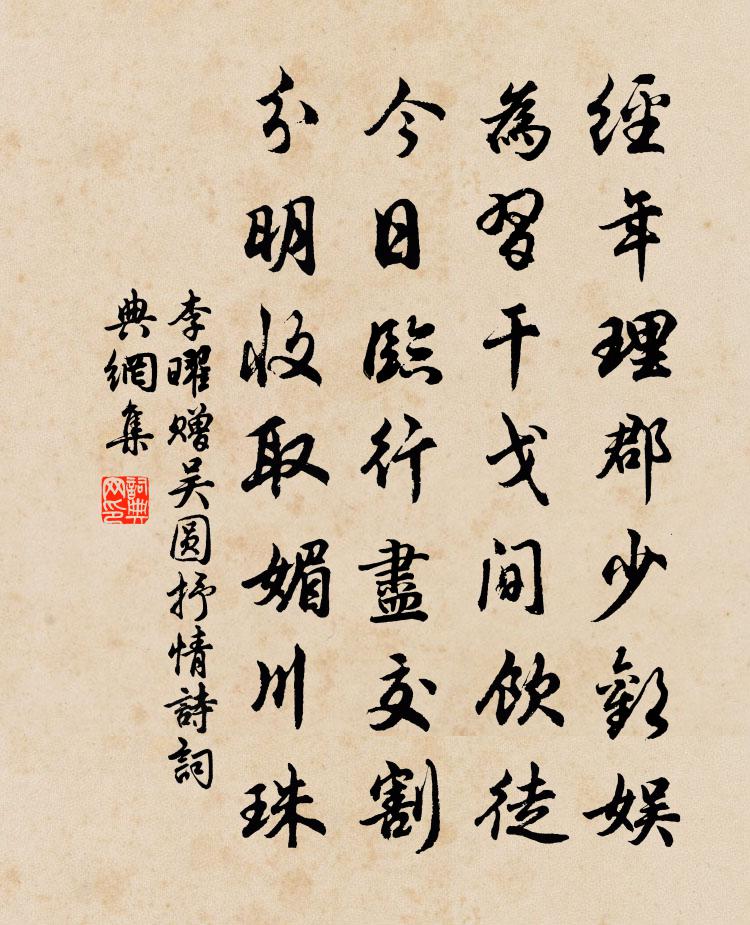 經年理郡少歡娱
為習干戈間飲徒
今日臨行盡交割
分明收取媚川珠
李曜赠吴圆抒情詩詞
典網集
詞典
网印